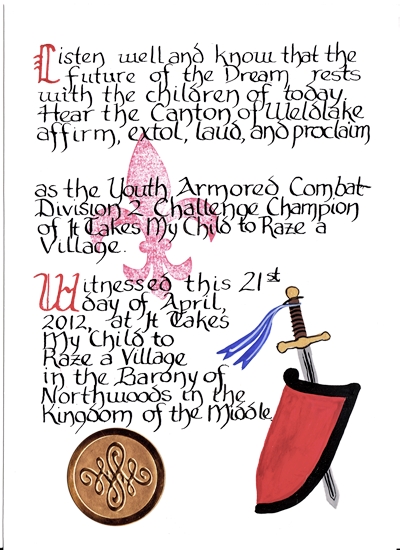 Listen well and know that the
future of the Dream rests
with the children of today.
Hear the Canton of Weldlake
affirm, extol, laud, and proclaim
as the Youth Armored Combat
Division 2 Challenge Champion
of It Takes My Child to Raze a
Village.
Witnessed this 21st
day of April,
2012, at It Takes
My Child to
Raze a Village
in the Barony of
Northwoods in the
Kingdom of the Middle.